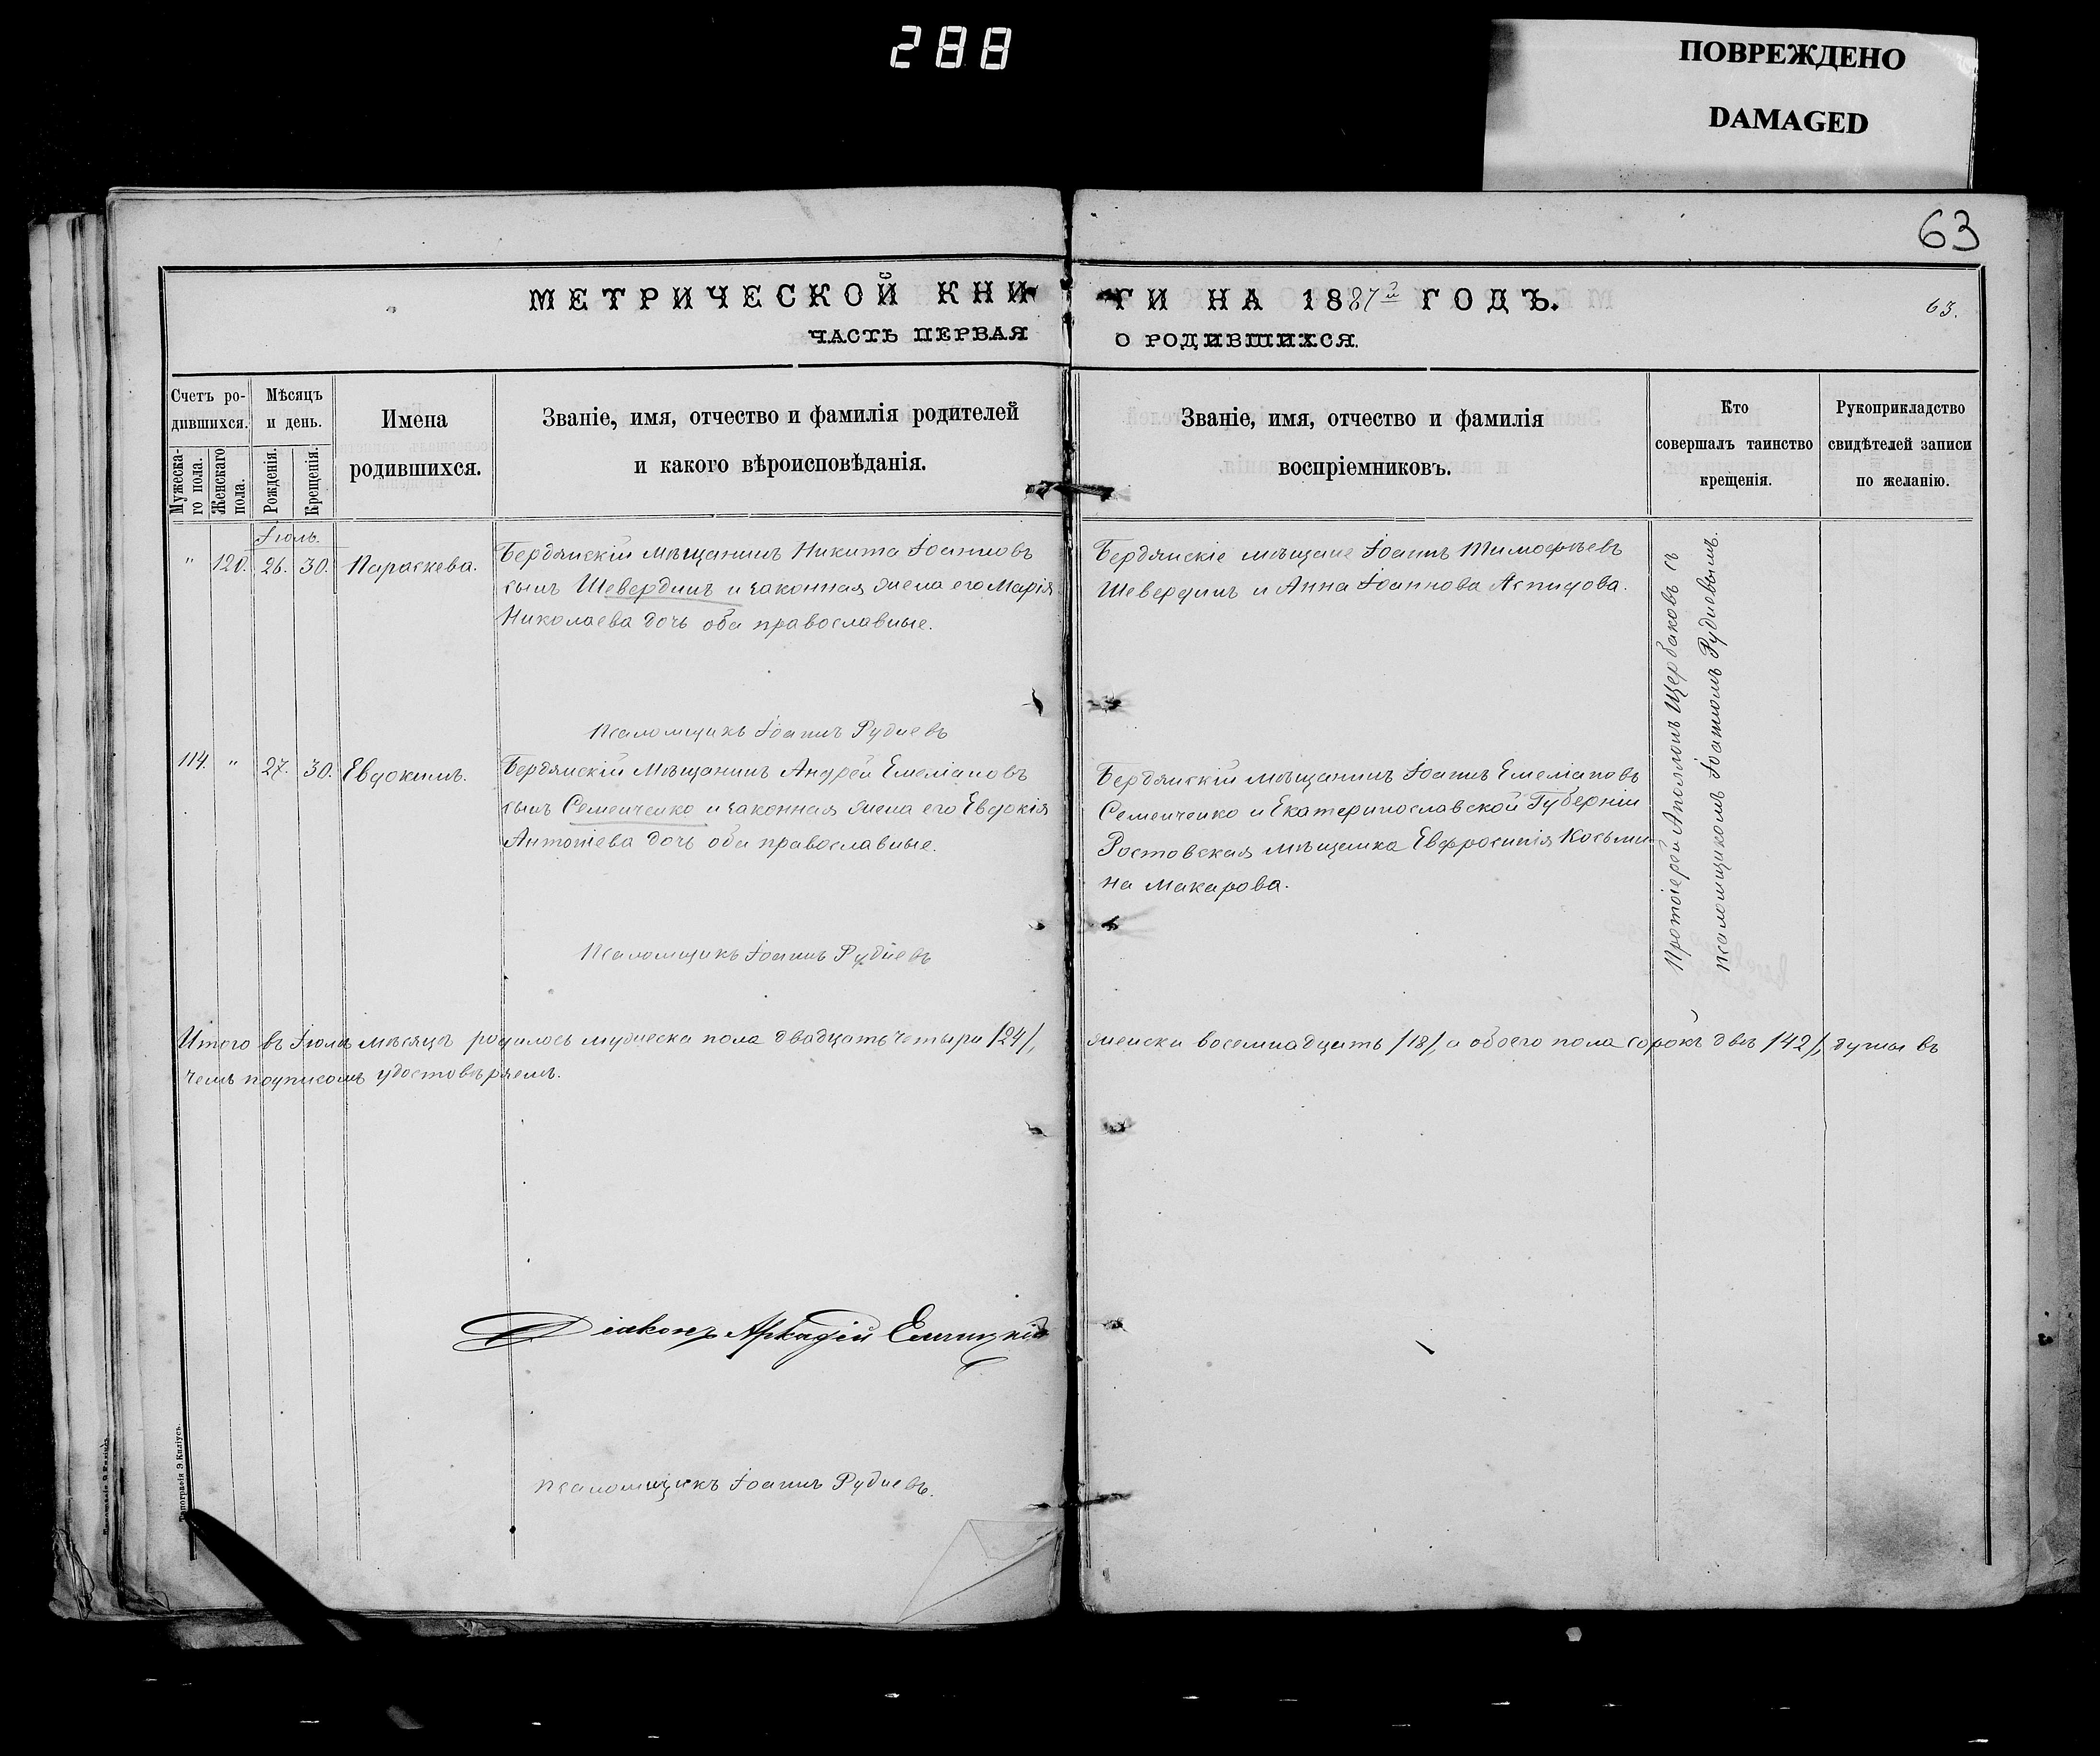 288
ПОВРЕЖДЕНО
DAMAGED
63
МЕТРИЧЕСКОЙ КНИ
ГИ НА 1887й ГОДЪ.
63.
ЧАСТЬ ПЕРВАЯ
О РОДИВШИХСЯ.
Счетъ ро-
дившихся.
Мужеска-
го пола.
Женскаго
пола.
Мѣсяцъ
и день.
Рожденія.
Крещенія.
Имена
родившихся.
Званіе, имя, отчество и фамилія родителей
и какого вѣроисповѣданія.
Званіе, имя, отчество и фамилія
воспріемниковъ.
Кто
совершалъ таинство
крещенія.
Рукоприкладство
свидѣтелей записи
по желанію.
Іюль.
" 120. 26. 30. Параскева.
Бердянскій мѣщанинъ Никита Іоанновъ
сынъ Шевердинъ и законная жена его Марія
Николаева дочь оба православные.
Бердянскіе мѣщане Іоаннъ Тимофѣевъ
Шевердинъ и Анна Іоаннова Аспидова.
Псаломщикъ Іоаннъ Рудневъ
114. " 27. 30. Евдокимъ.
Бердянскій Мѣщанинъ Андрей Емеліановъ
сынъ Семенченко и законная жена его Евдокія
Антоніева дочь оба православные.
Бердянскій мѣщанинъ Іоаннъ Емеліановъ
Семенченко и Екатеринославской Губерніи
Ростовская мѣщанка Евфросинія Косьми-
на Макарова.
Протоіерей Аполлонъ Щербаковъ съ
псаломщикомъ Іоанномъ Рудневымъ.
Псаломщикъ Іоаннъ Рудневъ
Итого въ Іюлѣ мѣсяцѣ родилось мужеска пола двадцать четыри /24/,
женска восемнадцать /18/, а обоего пола сорокъ двѣ /42/, души въ
чемъ подписомъ удостовѣряемъ.
Діаконъ Аркадій
Псаломщикъ Іоаннъ Рудневъ.
Типографія Э. Киліусъ.